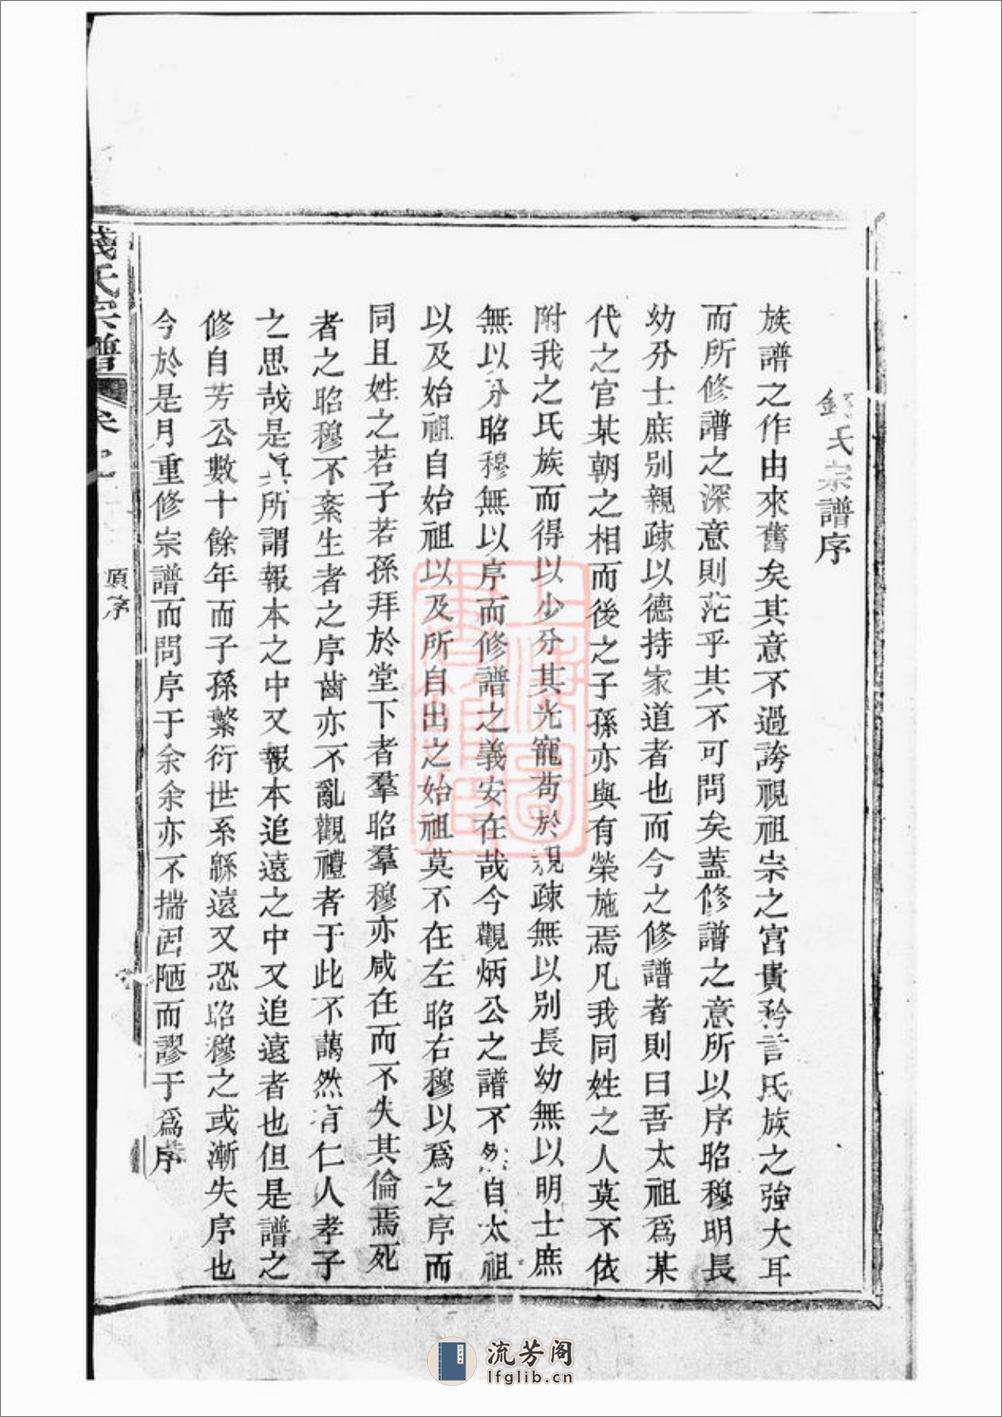 錢氏宗譜序
族譜之作由來舊矣其意不過誇視祖宗之富貴矜言氏族之強大耳
而所修譜之深意則茫乎其不可問矣蓋修譜之意所以序昭穆明長
幼分士庶別親疎以德持家道者也而今之修譜者則曰吾太祖爲某
代之官某朝之相而後之子孫亦與有榮施焉凡我同姓之人莫不依
附我之氏族而得以少分其光寵苟於親疎無以別長幼無以明士庶
無以分昭穆無以序而修譜之義安在哉今觀炳公之譜不然自太祖
以及始祖自始祖以及所自出之始祖莫不在左昭右穆以爲之序而
同且姓之若子若孫拜於堂下者羣昭羣穆亦咸在而不失其倫焉死
者之昭穆不紊生者之序齒亦不亂觀禮者于此不藹然有仁人孝子
之思哉是眞所謂報本之中又報本追遠之中又追遠者也但是譜之
修自芳公數十餘年而子孫繁衍世系緜遠又恐昭穆之或漸失序也
今於是月重修宗譜而問序于余余亦不揣固陋而謬于爲序
錢氏宗譜
卷之
原序
上海圖書館藏
流芳阁
lfglib.cn